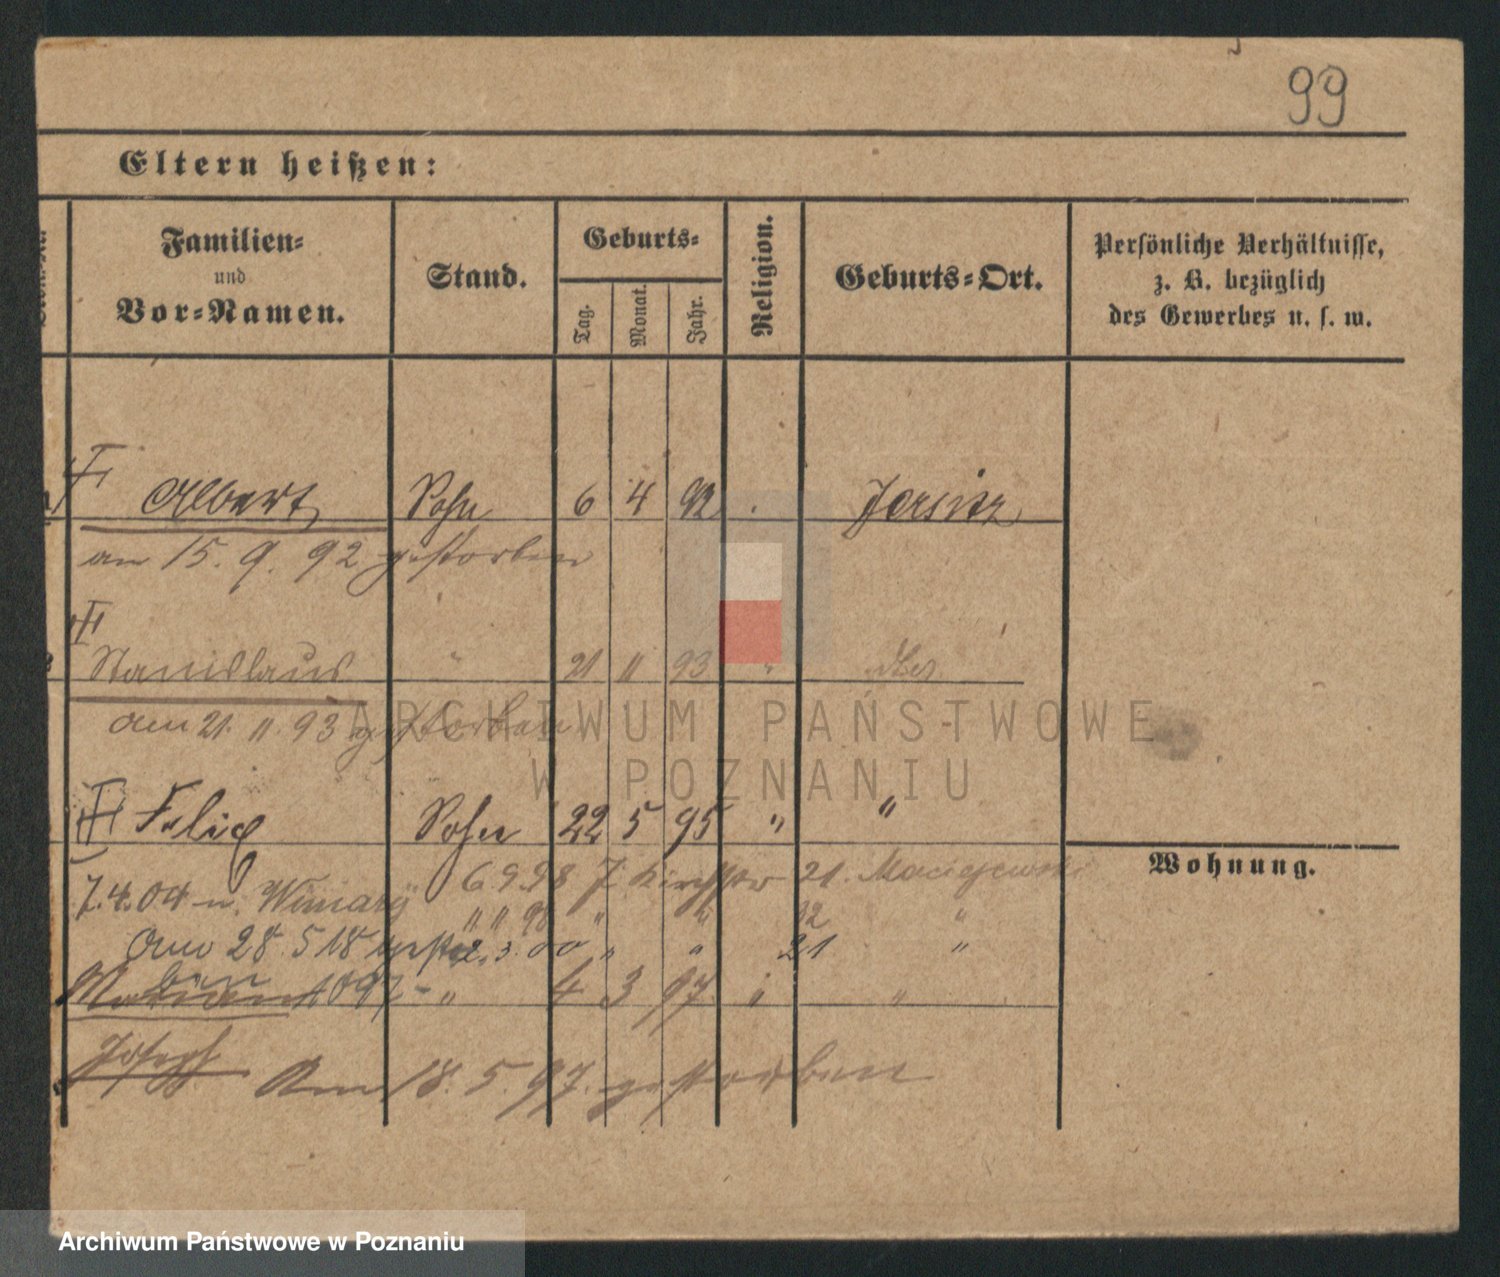 99
Eltern heißen:
Familien-
und
Vor-Namen.
Stand.
Geburts-
Tag.
Monat.
Jahr.
Religion.
Geburts-Ort.
Persönliche Verhältnisse,
z. B. bezüglich
des Gewerbes u. s. w.
Albert Sohn 6 4 92 Jersitz
am 15. 9. 92 gestorben
Stanislaus " 21 11 93 "
am 21. 11. 93 gestorben
ARCHIWUM PAŃSTWOWE
W POZNANIU
Felix Sohn 22 5 95 " "
Wohnung.
6.9.98 J. Kirchstr 21. Maciejewski
7.4.04 n. Winiary " 11 98 " " "
am 28. 5 18 2. 3. 00 " " 21 "
" 4 3 97 " "
Joseph
Am 18. 5. 97. gestorben
Archiwum Państwowe w Poznaniu